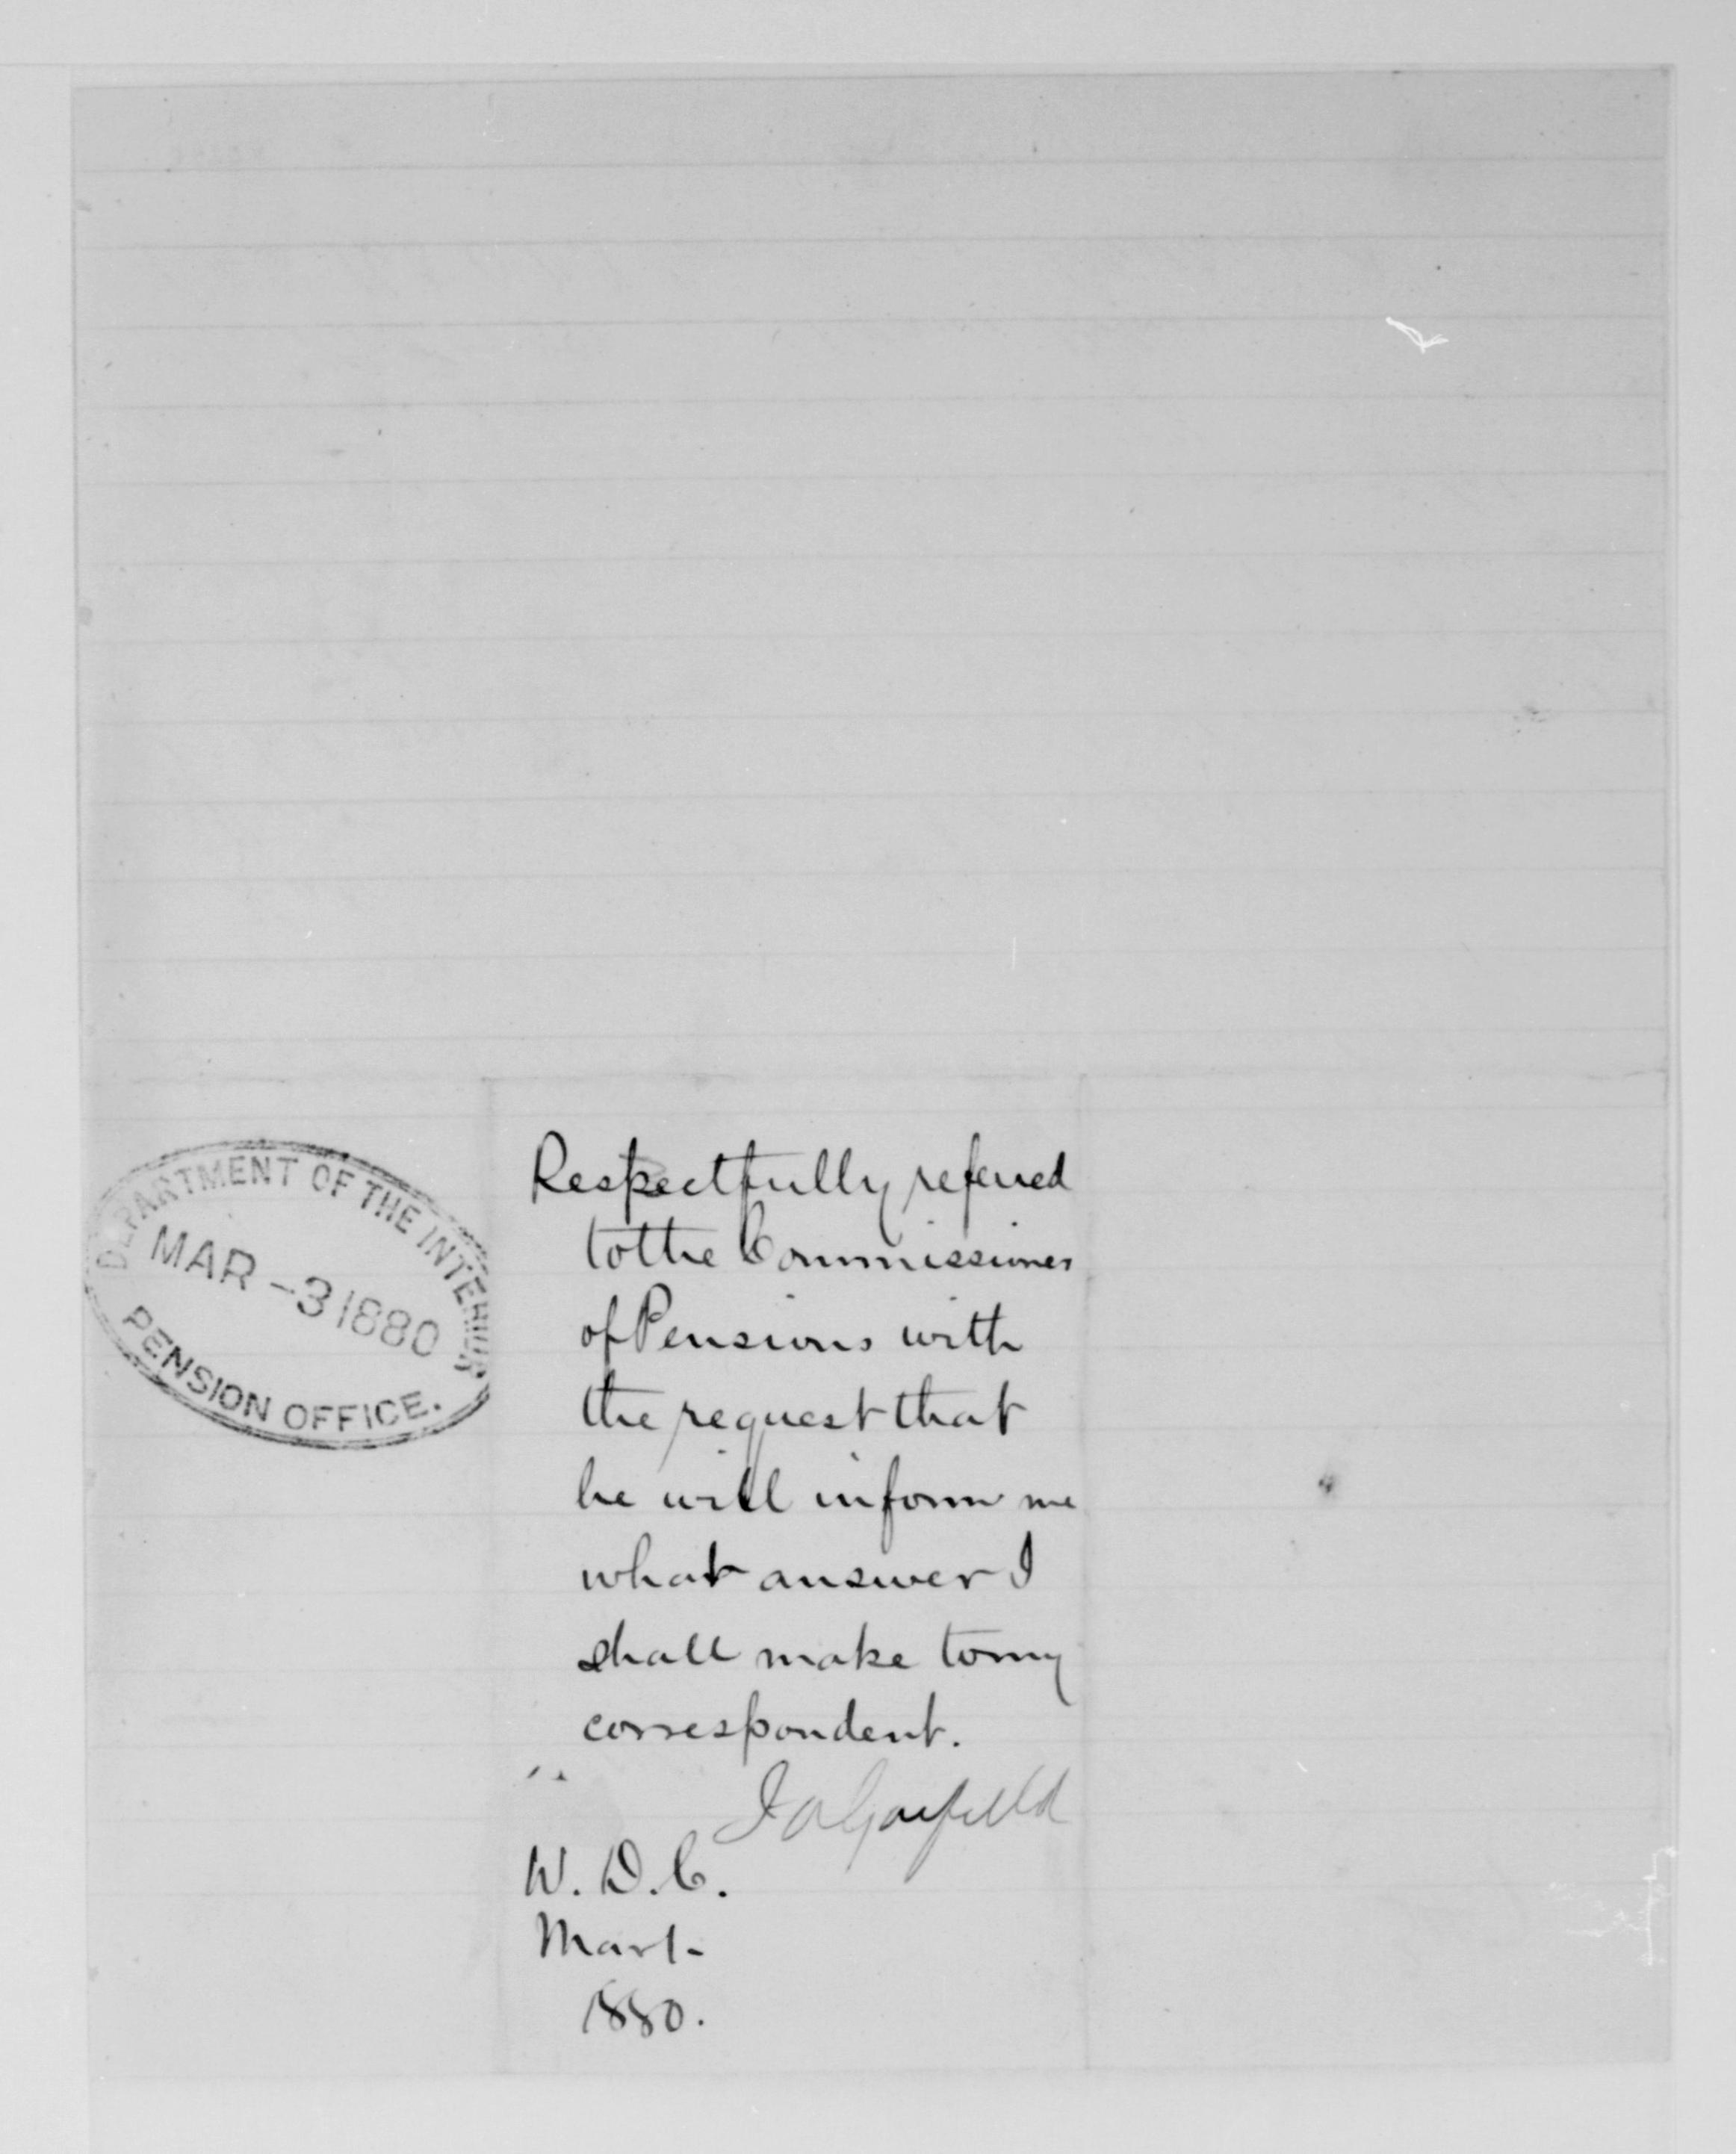 DEPARTMENT OF THE INTERIOR
MAR -3 1880
PENSION OFFICE.
Respectfully referred
to the Commissioner
of Pensions with
the request that
he will inform me
what answer I
shall make to my
correspondent.
J A Garfield
W. D. C.
Mar 1-
1880.